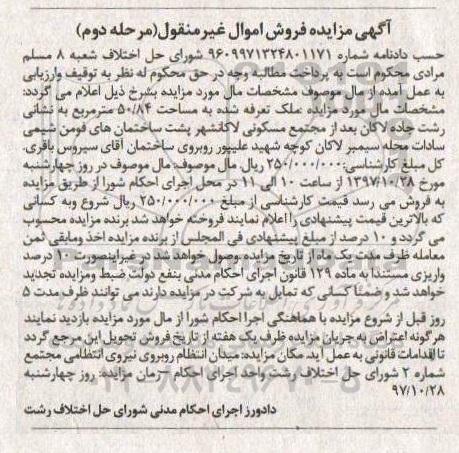 آگهی مزایده فروش اموال غیر منقول(مرحله دوم)
حسب دادنامه شماره ۹۶۰۹۹۷۱۳۲۴۸۰۱۱۷۱ شورای حل اختلاف شعبه ۸ مسلم
مرادی محکوم است به پرداخت مطالبه وجه در حق محکوم له نظر به توقیف وارزیابی
به عمل آمده از مال موصوف مشخصات مال مورد مزایده بشرح ذیل اعلام می گردد:
مشخصات مال مورد مزایده :ملک تعرفه شده به مساحت ۵۰/۸۴ مترمربع به نشانی
رشت جاده لاکان بعد از مجتمع مسکونی لاکانشهر پشت ساختمان های فومن شیمی
سادات محله سیمبر لاکان کوچه شهید علیپور روبروی ساختمان آقای سیروس باقری.
کل مبلغ کارشناسی:۲۵۰/۰۰۰/۰۰۰ ریال. مال موصوف: مال موصوف در روز چهارشنبه
مورخ ۱۳۹۷/۱۰/۲۸ از ساعت ۱۰ الی ۱۱ در محل اجرای احکام شورا از طریق مزایده
به فروش می رسد قیمت کارشناسی از مبلغ ۲۵۰/۰۰۰/۰۰۰ ریال شروع وبه کسانی
که بالاترین قیمت پیشنهادی را اعلام نمایند فروخته خواهد شد برنده مزایده محسوب
می گردد و ۱۰ درصد از مبلغ پیشنهادی فی المجلس از برنده مزایده اخذ ومابقی ثمن
معامله ظرف مدت یک ماه از تاریخ مزایده وصول خواهد شد در غیراینصورت ۱۰ درصد
واریزی مستندا به ماده ۱۲۹ قانون اجرای احکام مدنی بنفع دولت ضبط ومزایده تجدید
خواهد شد و ضمناً کسانی که تمایل به شرکت در مزایده دارند می توانند ظرف مدت ۵
روز قبل از شروع مزایده با هماهنگی اجرا احکام شورا از مال مورد مزایده بازدید نمایند
هرگونه اعتراض به جریان مزایده ظرف یک هفته از تاریخ فروش تحویل این مرجع گردد
تا اقدامات قانونی به عمل آید. مکان مزایده: میدان انتظام روبروی نیروی انتظامی مجتمع
شماره ۲ شورای حل اختلاف رشت واحد اجرای احکام -زمان مزایده: روز چهارشنبه
۹۷/۱۰/۲۸
دادورز اجرای احکام مدنی شورای حل اختلاف رشت